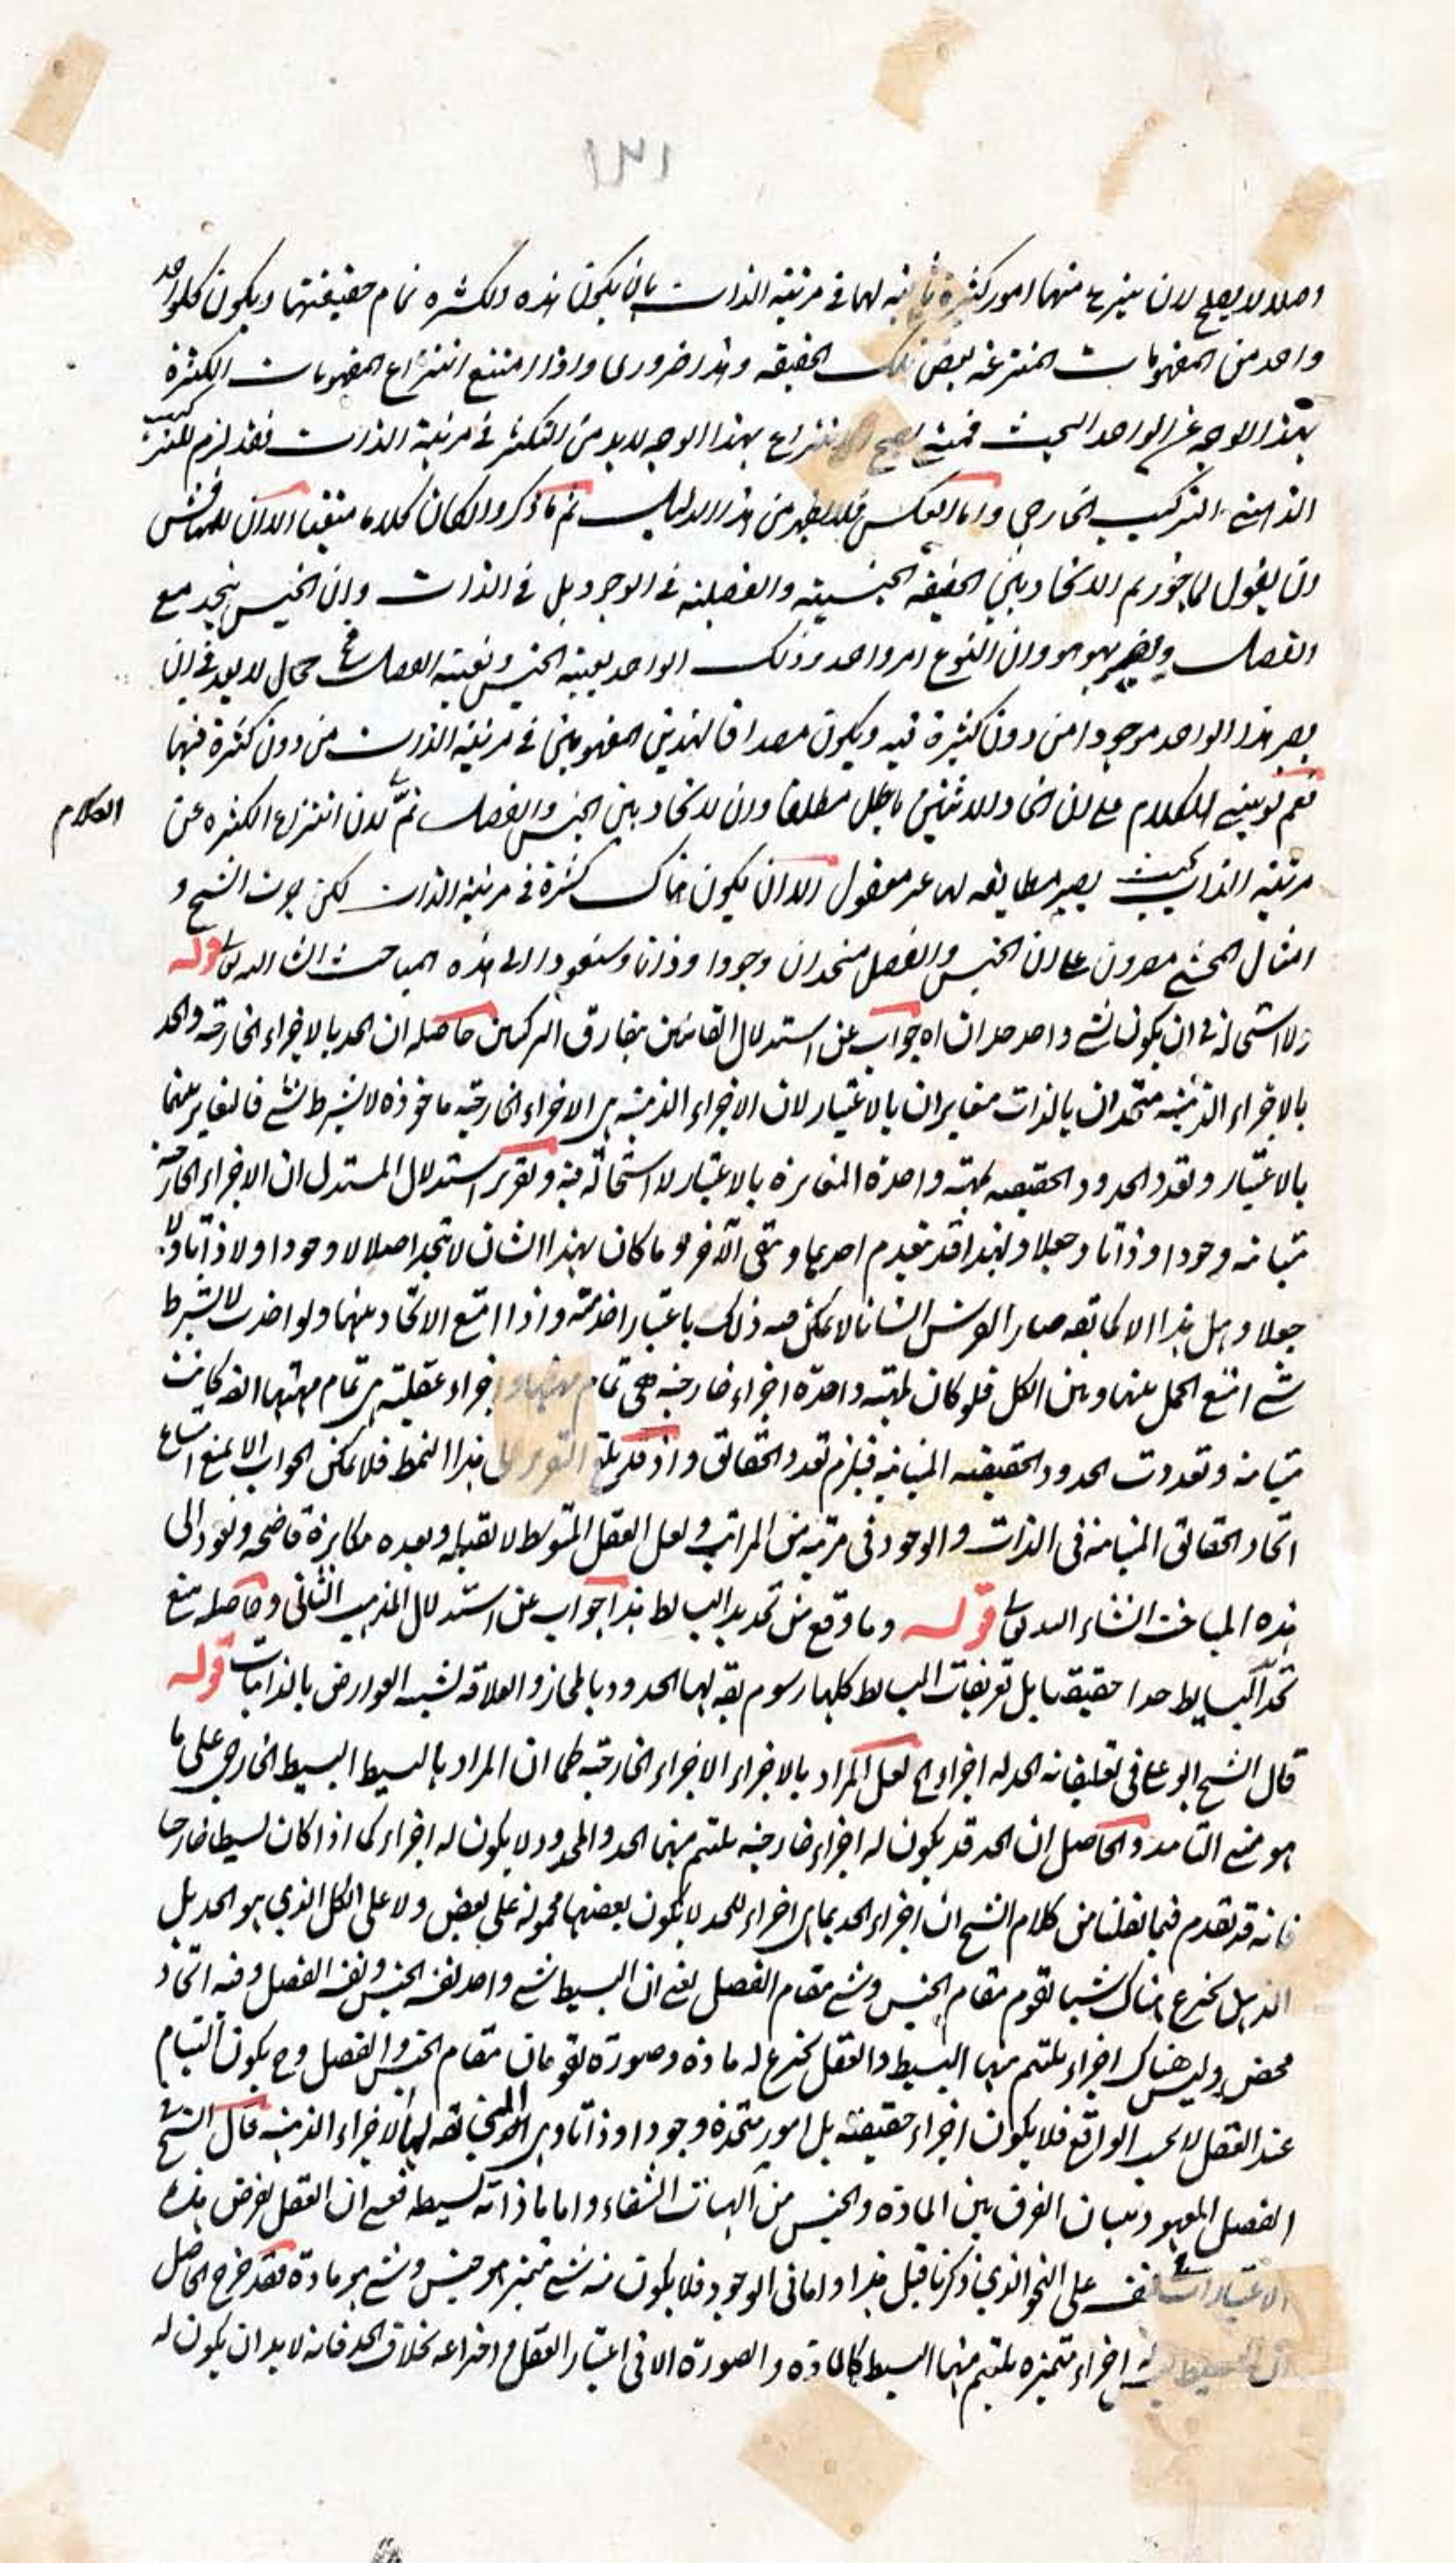 ١٣١
اصلا لا يصلح لان ينتزع منها امور كثيرة لها في مرتبة الذات بان يكون هذه الكثرة تمام حقيقتها ويكون كلواحد
واحد من المفهومات المنتزعة بعض تلك الحقيقة وهذا ضروري واذا امتنع انتزاع المفهومات الكثيرة
بهذا الوجه عن الواحد البحت فحيث يصح الانتزاع بهذا الوجه لا بد من التكثر في مرتبة الذات فقد لزم للتركيب
الذهني التركيب الخارجي واما العكس فلا يظهر من هذا الدليل ثم ما ذكروا وان كان كلاما متينا الا ان للمناقش
ان يقول لما جوزتم الاتحاد بين الحقيقة الجنسية والفصلية في الوجود بل في الذات وان الجنس يتحد مع
الفصل ويصير هو هو وان النوع امر واحد وذلك الواحد بعينه الجنس وبعينه الفصل فح محال لا يعد في ان
يصير هذا الواحد موجودا من دون كثرة فيه ويكون مصداقا لهذين المفهومين في مرتبة الذات من دون كثرة فيها
نعم لو بني الكلام على ان اتحاد الاثنين باطل مطلقا وان لا اتحاد بين الجنس والفصل تم لان انتزاع الكثرة عن
الكلام
مرتبة الذات بحيث يصير مطابقه لها غير معقول الا ان يكون هناك كثرة في مرتبة الذات لكن الشيخ و
امثال المحشي مصرون على ان الجنس والفصل متحدان وجودا وذاتا وسنعود الى هذه المباحث ان شاء الله تعالى قوله
ولا استحالة في ان يكون لشيء واحد حدان اه جواب عن استدلال القائلين بتفارق التركيبين حاصله ان الحد بالاجزاء الخارجية والحد
بالاجزاء الذهنية متحدان بالذات متغايران بالاعتبار لان الاجزاء الذهنية هي الاجزاء الخارجية ماخوذة لا بشرط شيء فالتغاير بينهما
بالاعتبار وتعدد الحدود الحقيقية لمهية واحدة المتغايرة بالاعتبار لا استحالة فيه وتقرير استدلال المستدل ان الاجزاء الخارجية
متباينة وجودا وذاتا وجعلا ولهذا قد ينعدم احدهما ويبقى الآخر وما كان بهذا الشان لا يتحد اصلا لا وجودا ولا ذاتا ولا
جعلا وهل هذا الا كما يقه صار الفرس انسانا لا يمكن فيه ذلك باعتبار اخذته واذا امتنع الاتحاد بينهما ولو اخذت لا بشرط
شيء امتنع الحمل بينها وبين الكل فلو كان لمهية واحدة اجزاء خارجية هي تمام مهيتها واجزاء عقلية هي تمام مهيتها ايضه كانت
متباينة وتعددت الحدود الحقيقية المتباينة فيلزم تعدد الحقائق واذ قد بلغ التقرير الى هذا النمط فلا يمكن الجواب الا بمنع امتناع
اتحاد الحقائق المتباينة في الذات والوجود في مرتبة من المراتب ولعل العقل المتوسط لا يقبله ويعده مكابرة فاضحة ونعود الى
هذه المباحث انشاء الله تعالى قوله وما وقع من تحديد البسائط هذا جواب عن استدلال المذهب الثاني وحاصله منع
تحد البسايط حدا حقيقيا بل تعريفات البسائط كلها رسوم يقه لها الحدود بالمجاز والعلاقة لشبه العوارض بالذاتيات قوله
قال الشيخ ابو علي في تعليقاته الحد له اجزاء الخ لعل المراد بالاجزاء الاجزاء الخارجية كما ان المراد بالبسيط البسيط الخارجي على ما
هو منع التامد والحاصل ان الحد قد يكون له اجزاء خارجية يلتئم منها الحد والمحدود لا يكون له اجزاء كما اذا كان بسيطا خارجيا
فانه قد تقدم فيما نقلنا من كلام الشيخ ان اجزاء الحد بما هي اجزاء للحد لا يكون بعضها محمولة على بعض ولا على الكل الذي هو الحد بل
الذهن يخترع هناك شيئا تقوم مقام الجنس وشيء مقام الفصل يعني ان البسيط شيء واحد نفسه الجنس ونفسه الفصل وفيه اتحاد
محض وليس هناك اجزاء يلتئم منها البسيط والعقل يخترع له مادة وصورة تقومان مقام الجنس والفصل وح يكون التيام
عند العقل لا بحسب الواقع فلا يكون اجزاء حقيقية بل امور متحدة وجودا وذاتا وهي يقه لها الاجزاء الذهنية قال الشيخ في
الفصل المعهود ببيان الفرق بين المادة والجنس من الهيات الشفاء واما ما ذاته بسيطة فعسى ان العقل يفرض هذه
الاعتبارات في نفسه على النحو الذي ذكرنا قبل هذا واما في الوجود فلا يكون منه شيء متميز هو جنس وشيء هو مادة فقد خرج الحاصل
ان البسيط ليس له اجزاء متميزة يلتئم منها البسيط كالمادة والصورة الا في اعتبار العقل واختراعه بخلاف الحد فانه لا بد ان يكون له